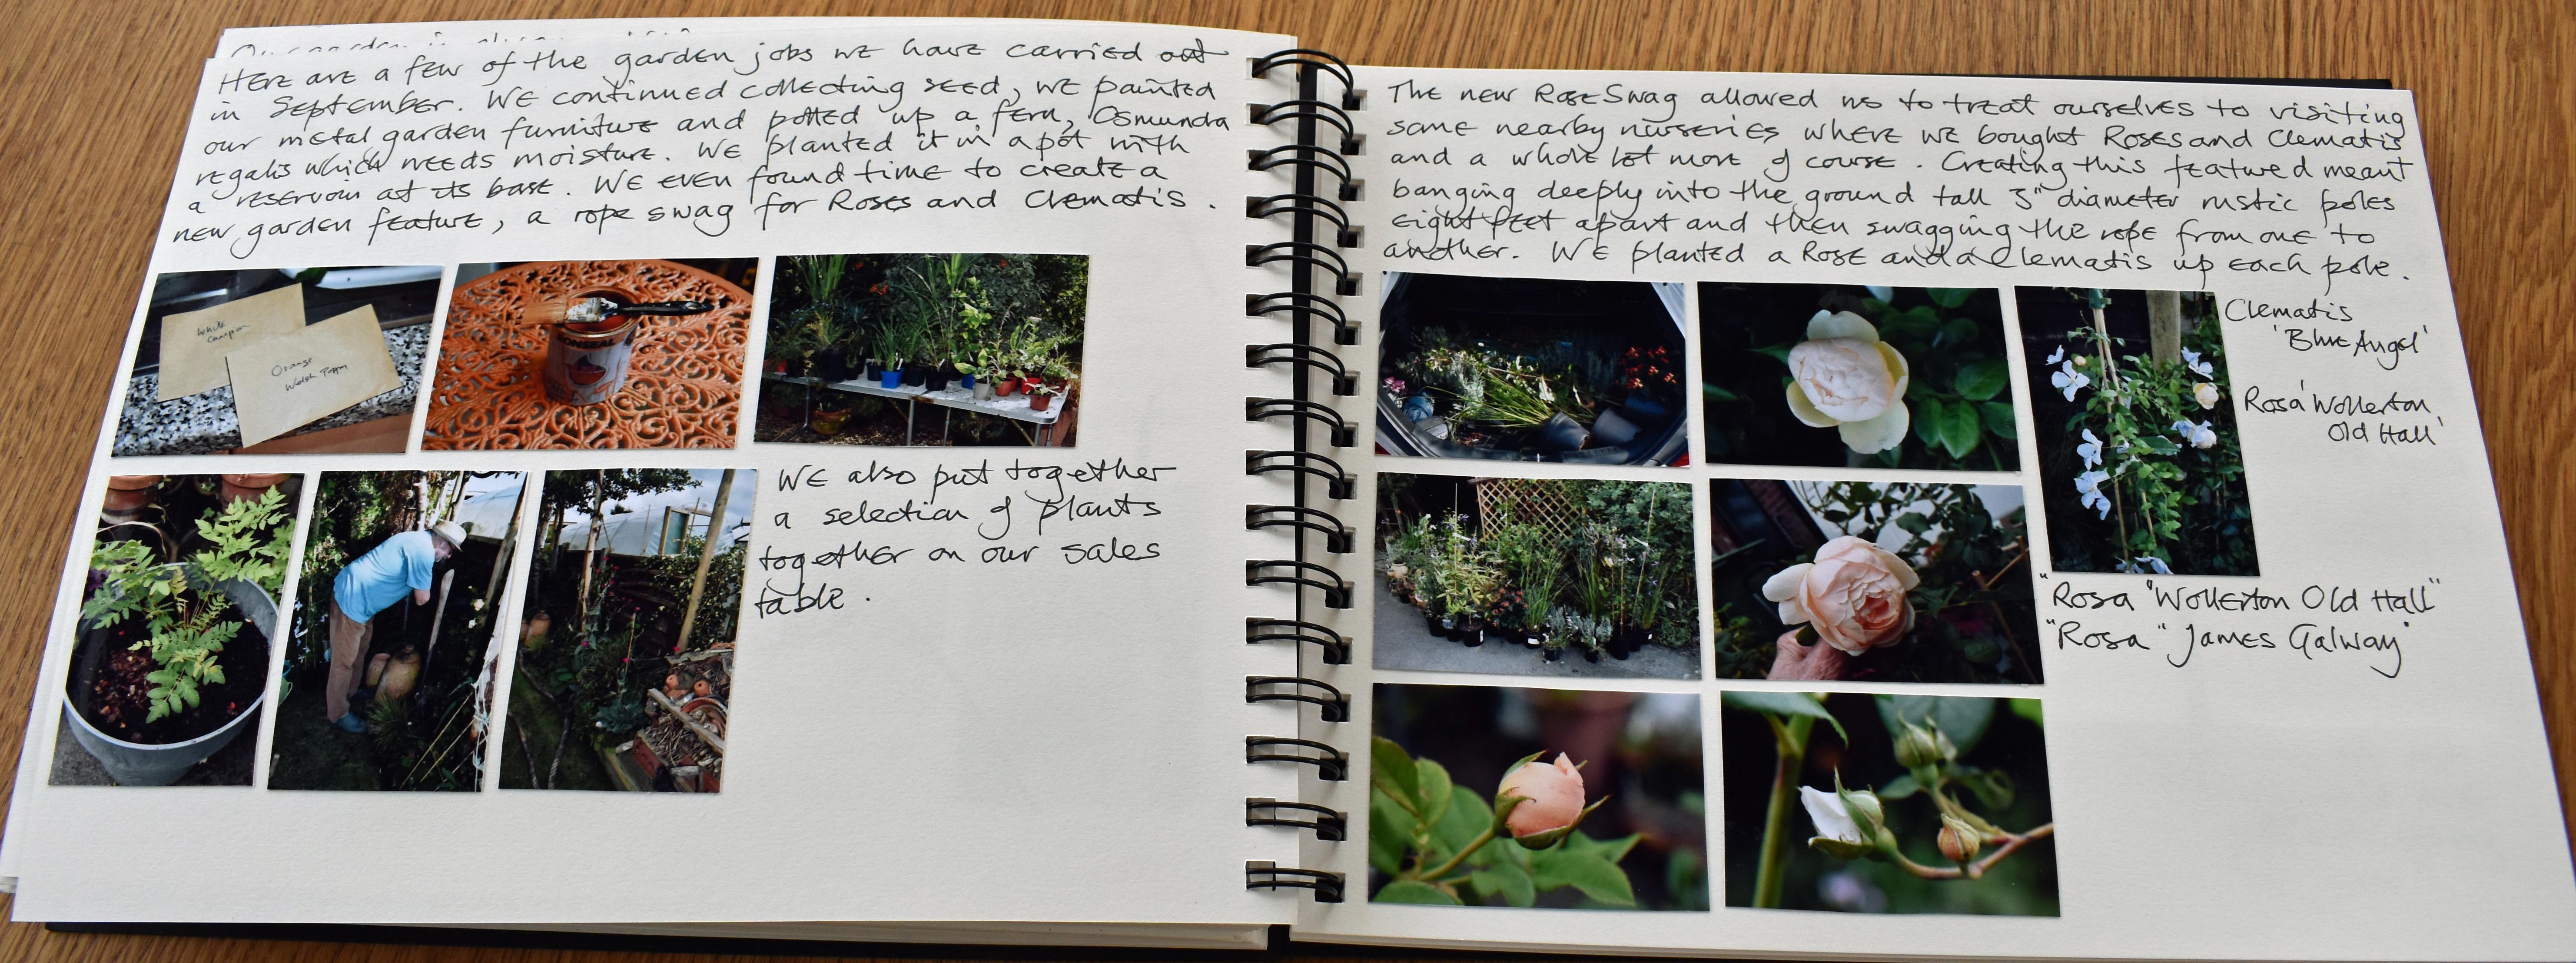 Here are a few of the garden jobs we have carried out
in September. We continued collecting seed, we painted
our metal garden furniture and potted up a fern, Osmunda
regalis which needs moisture. We planted it in a pot with
a reservoir at its base. We even found time to create a
new garden feature, a rope swag for Roses and Clematis.
White
Campion
Orange
Welsh Poppy
RONSEAL
We also put together
a selection of plants
together on our sales
table.
The new Rose Swag allowed us to treat ourselves to visiting
some nearby nurseries where we bought Roses and Clematis
and a whole lot more of course. Creating this featured meant
banging deeply into the ground tall 3" diameter rustic poles
eight feet apart and then swagging the rope from one to
another. We planted a Rose and a Clematis up each pole.
Clematis
'Blue Angel'
Rosa 'Wollerton
Old Hall'
"Rosa "Wollerton Old Hall"
"Rosa" James Galway"